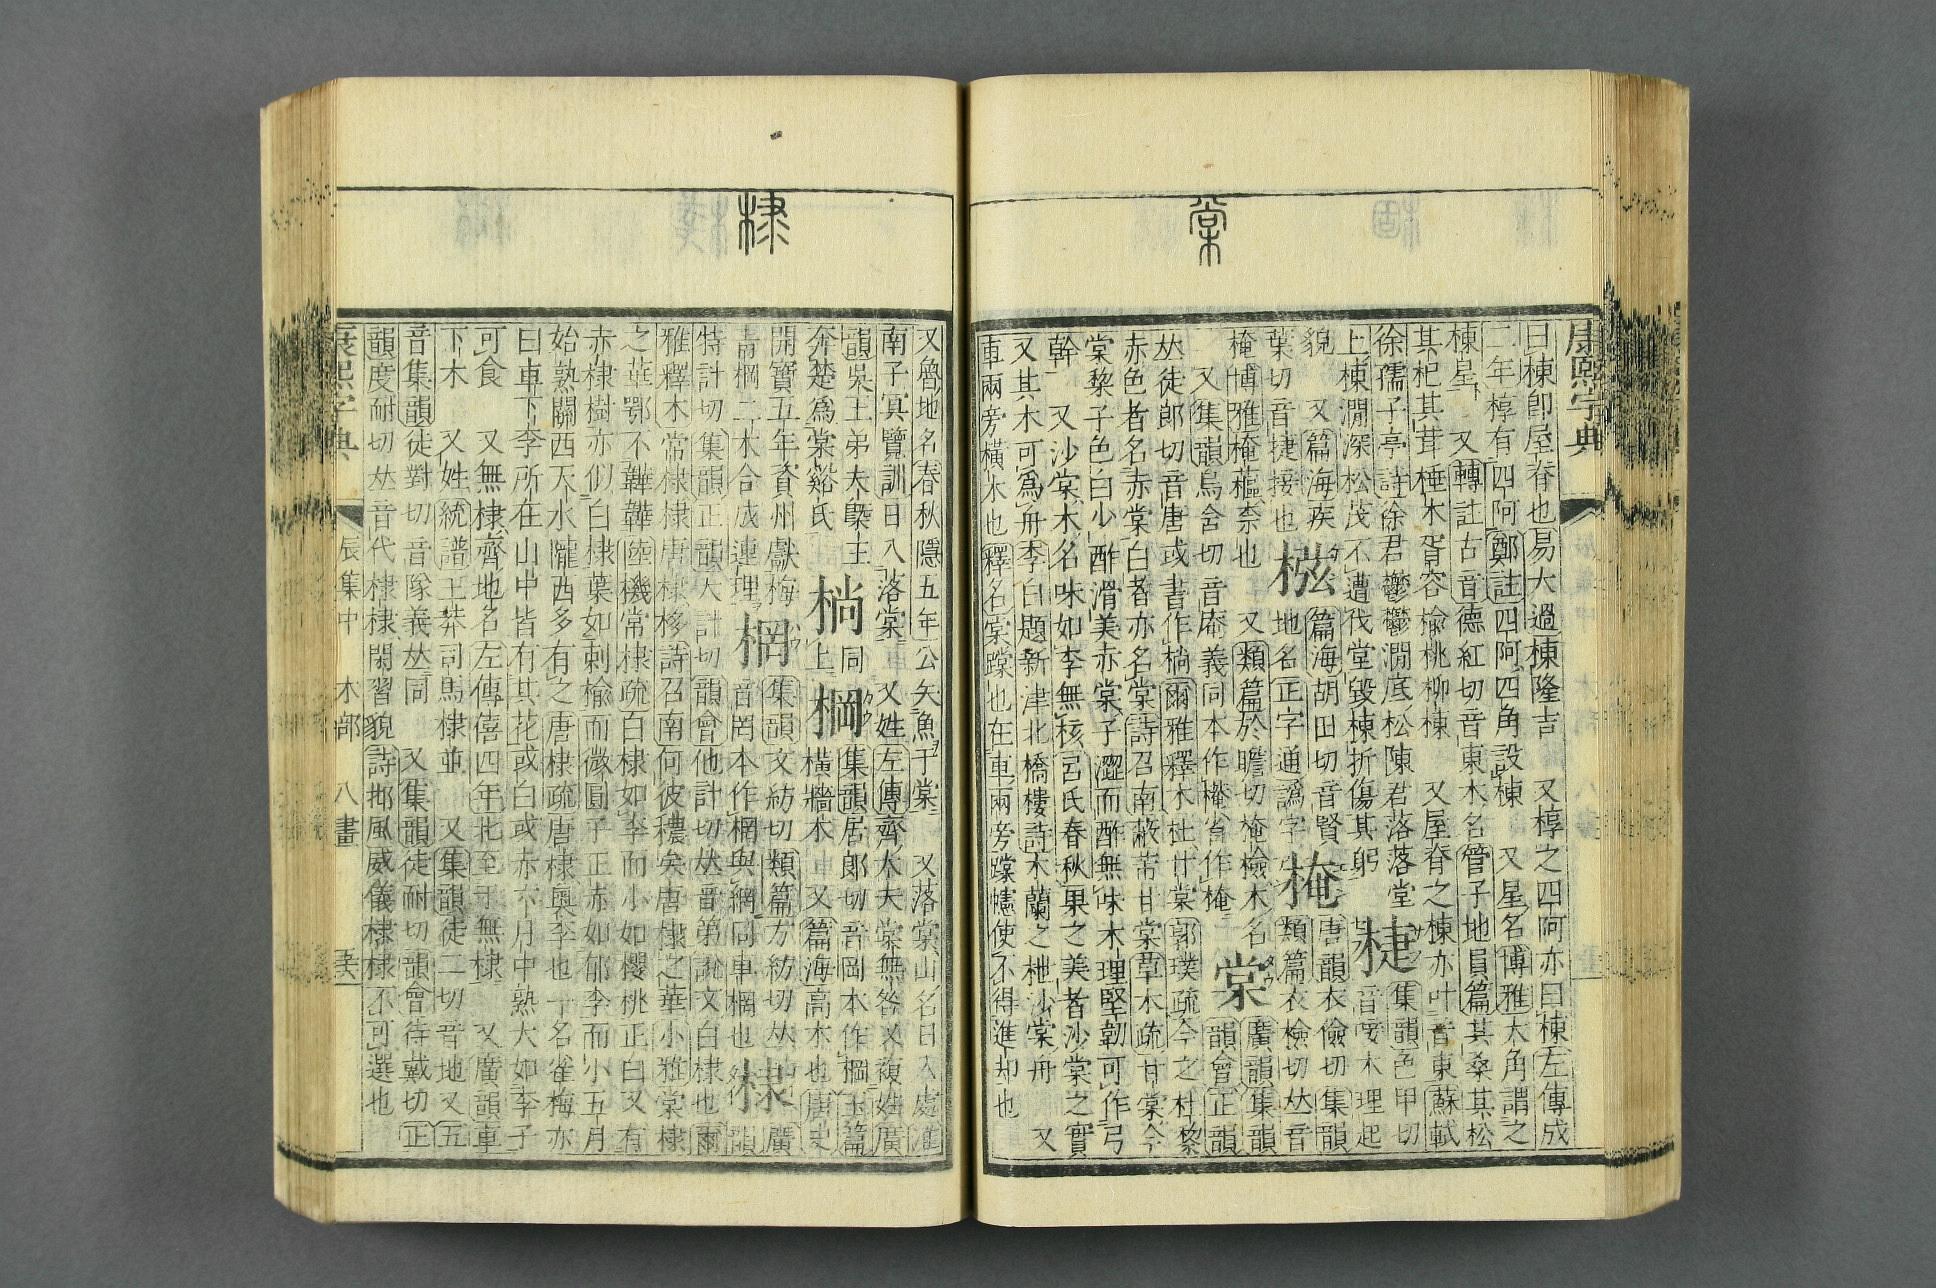 棠
康熙字典
曰棟卽屋脊也易大過棟隆吉 又椁之四阿亦曰棟左傳成
二年椁有四阿鄭註四阿四角設棟 又星名博雅大角謂之
棟星 又轉註古音德紅切音東木名管子地員篇其桑其松
其杞其茸棰木胥容榆桃柳棟 又屋脊之棟亦叶音東蘇軾
徐孺子亭詩徐君鬱鬱澗底松陳君落落堂
上棟澗深松茂不遭伐堂毀棟折傷其躬
棲
集韻色甲切
音唼木理起
貌 又篇海疾
葉切音捷接也
篇海胡田切音賢
地名正字通譌字
掩
唐韻衣儉切集韻
類篇衣檢切𠀤音
掩博雅掩蓲柰也 又類篇於瞻切掩檢木名
又集韻烏含切音庵義同本作㭺省作掩
棠
廣韻集韻
韻會正韻
𠀤徒郎切音唐或書作橖爾雅釋木杜甘棠郭璞疏今之杜黎
赤色者名赤棠白者亦名棠詩召南蔽芾甘棠草木疏甘棠今
棠黎子色白少酢滑美赤棠子澀而酢無味木理堅韌可作弓
幹 又沙棠木名味如李無核呂氏春秋果之美者沙棠之實
又其木可爲舟李白題新津北橋樓詩木蘭之枻沙棠舟 又
車兩旁橫木也釋名棠䠀也在車兩旁䠀幰使不得進却也
棣
又魯地名春秋隱五年公矢魚于棠 又落棠山名日入處淮
南子冥覽訓日入落棠 又姓左傳齊大夫棠無咎又複姓廣
韻吳王弟夫槩王
奔楚爲棠谿氏
同
上
棡
集韻居郎切音岡本作棡玉篇
橫牆木 又篇海高木也唐史
開寶五年資州獻梅
靑棡二木合成連理
棢
集韻文紡切類篇方紡切𠀤
音罔本作棢與網同車棢也
棣
廣韻
特計切集韻正韻大計切韻會他計切𠀤音弟說文白棣也爾
雅釋木常棣棣唐棣栘詩召南何彼穠矣唐棣之華小雅棠棣
之華鄂不韡韡陸機常棣疏白棣如李而小如櫻桃正白又有
赤棣樹亦似白棣葉如刺榆而微圓子正赤如郁李而小五月
始熟關西天水隴西多有之唐棣疏唐棣奧李也一名雀梅亦
曰車下李所在山中皆有其花或白或赤六月中熟大如李子
可食 又無棣齊地名左傳僖四年北至于無棣 又廣韻車
下木 又姓統譜王莽司馬棣並 又集韻徒二切音地又五
音集韻徒對切音隊義𠀤同 又集韻徒耐切韻會待戴切正
韻度耐切𠀤音代棣棣閑習貌詩邶風威儀棣棣不可選也
康熙字典 辰集中 木部 八畫